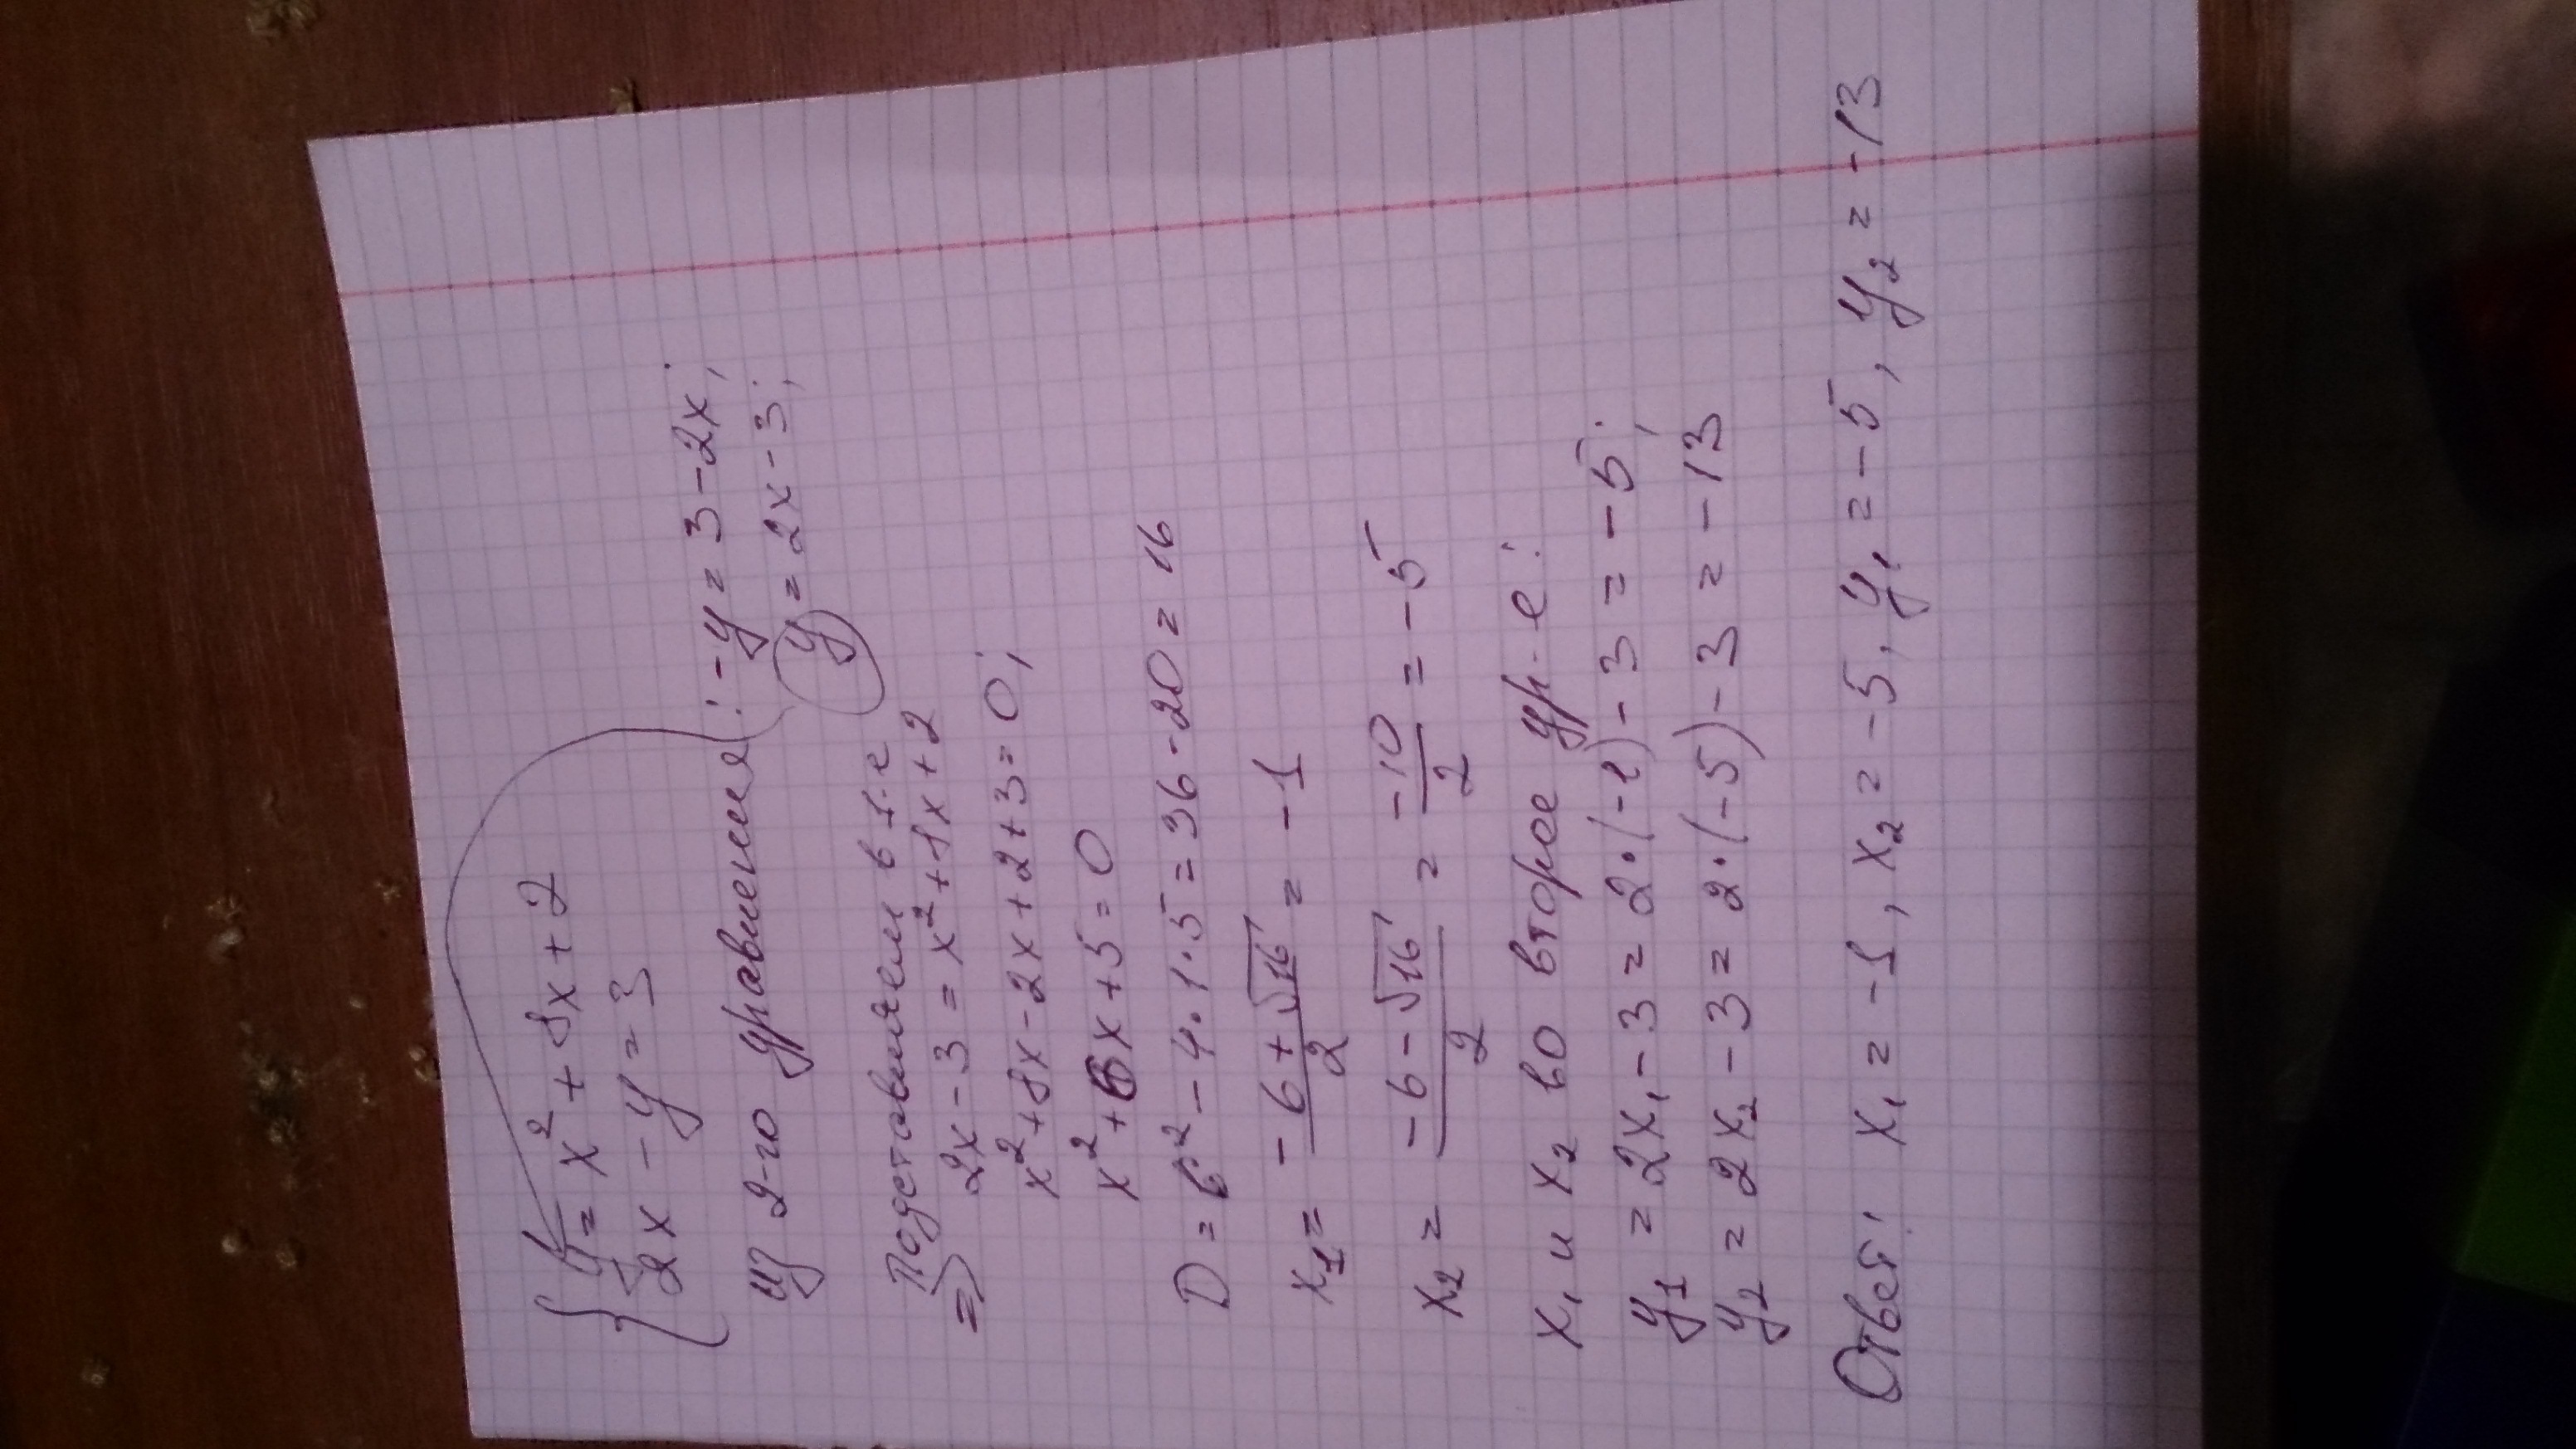 { y = x² + 8x + 2
2x - y = 3
из 2-го уравнения: -y = 3 - 2x;
y = 2x - 3;
Подставляем в 1-е
=> 2x - 3 = x² + 8x + 2
x² + 8x - 2x + 2 + 3 = 0;
x² + 6x + 5 = 0
D = 6² - 4·1·5 = 36 - 20 = 16
x₁ = (-6 + √16)/2 = -1
x₂ = (-6 - √16)/2 = -10/2 = -5
x₁ и x₂ во второе ур-е:
y₁ = 2x₁ - 3 = 2·(-1) - 3 = -5;
y₂ = 2x₂ - 3 = 2·(-5) - 3 = -13
Ответ: x₁ = -1, x₂ = -5, y₁ = -5, y₂ = -13